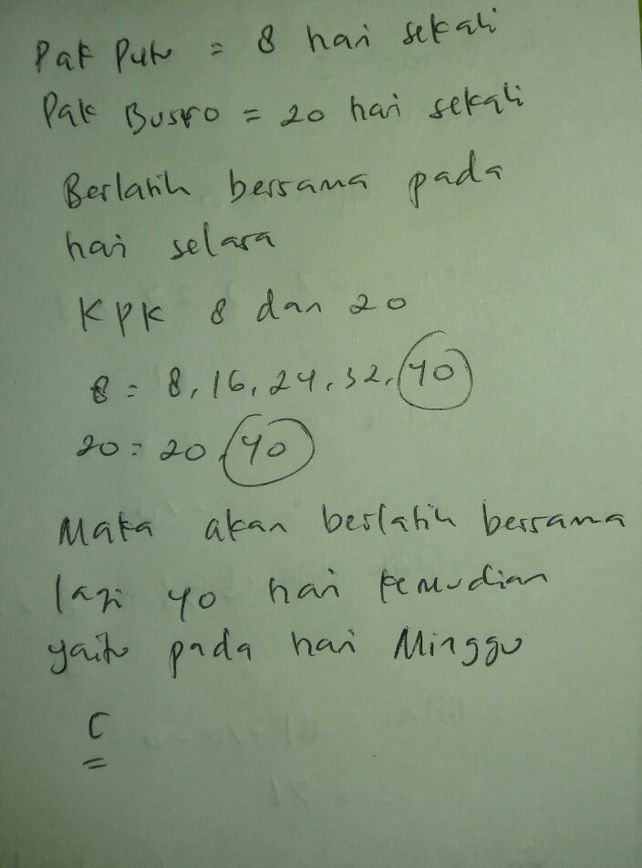 Pak Putu = 8 hari sekali
Pak Busro = 20 hari sekali
Berlatih bersama pada
hari selasa
KPK 8 dan 20
8 = 8, 16, 24, 32, 40
20 = 20, 40
Maka akan berlatih bersama
lagi 40 hari kemudian
yaitu pada hari Minggu
C